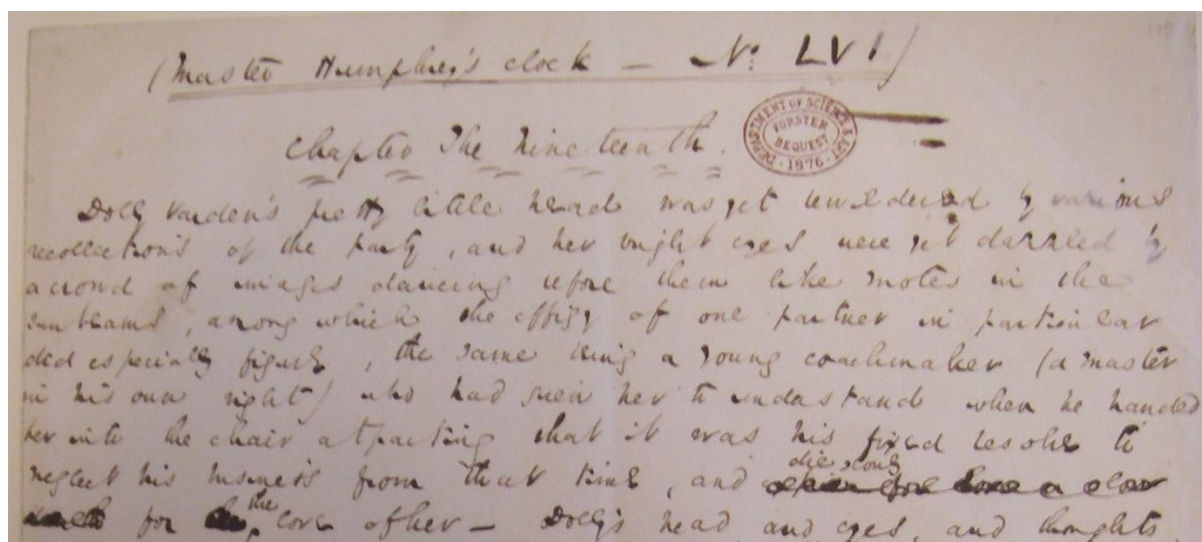 (Master Humphrey's Clock — No. LVI)
DEPARTMENT OF SCIENCE & ART
FORSTER
BEQUEST
1876
Chapter The Nineteenth.
Dolly Varden's pretty little head was yet bewildered by various
recollections of the party, and her bright eyes were yet dazzled by
a crowd of images dancing before them like motes in the
sunbeams, among which the effigy of one partner in particular
did especially figure, the same being a young coachmaker (a master
in his own right) who had given her to understand when he handed
her into the chair at parting that it was his fixed resolve to
neglect his business from that time, and die slowly
for the love of her — Dolly's head, and eyes, and thoughts,